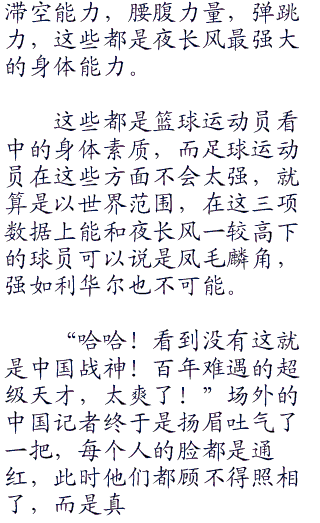 滞空能力，腰腹力量，弹跳
力，这些都是夜长风最强大
的身体能力。
这些都是篮球运动员看
中的身体素质，而足球运动
员在这些方面不会太强，就
算是以世界范围，在这三项
数据上能和夜长风一较高下
的球员可以说是凤毛麟角，
强如利华尔也不可能。
“哈哈！看到没有这就
是中国战神！百年难遇的超
级天才，太爽了！”场外的
中国记者终于是扬眉吐气了
一把，每个人的脸都是通
红，此时他们都顾不得照相
了，而是真